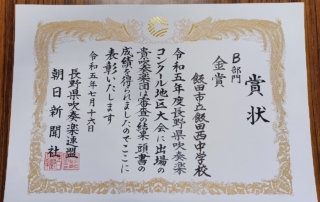 賞状
B部門
金賞
飯田市立飯田西中学校
令和五年度長野県吹奏楽
コンクール地区大会に出場の
貴吹奏楽団は審査の結果頭書の
成績を得られましたのでここに
表彰いたします
令和五年七月十六日
長野県吹奏楽連盟
朝日新聞社